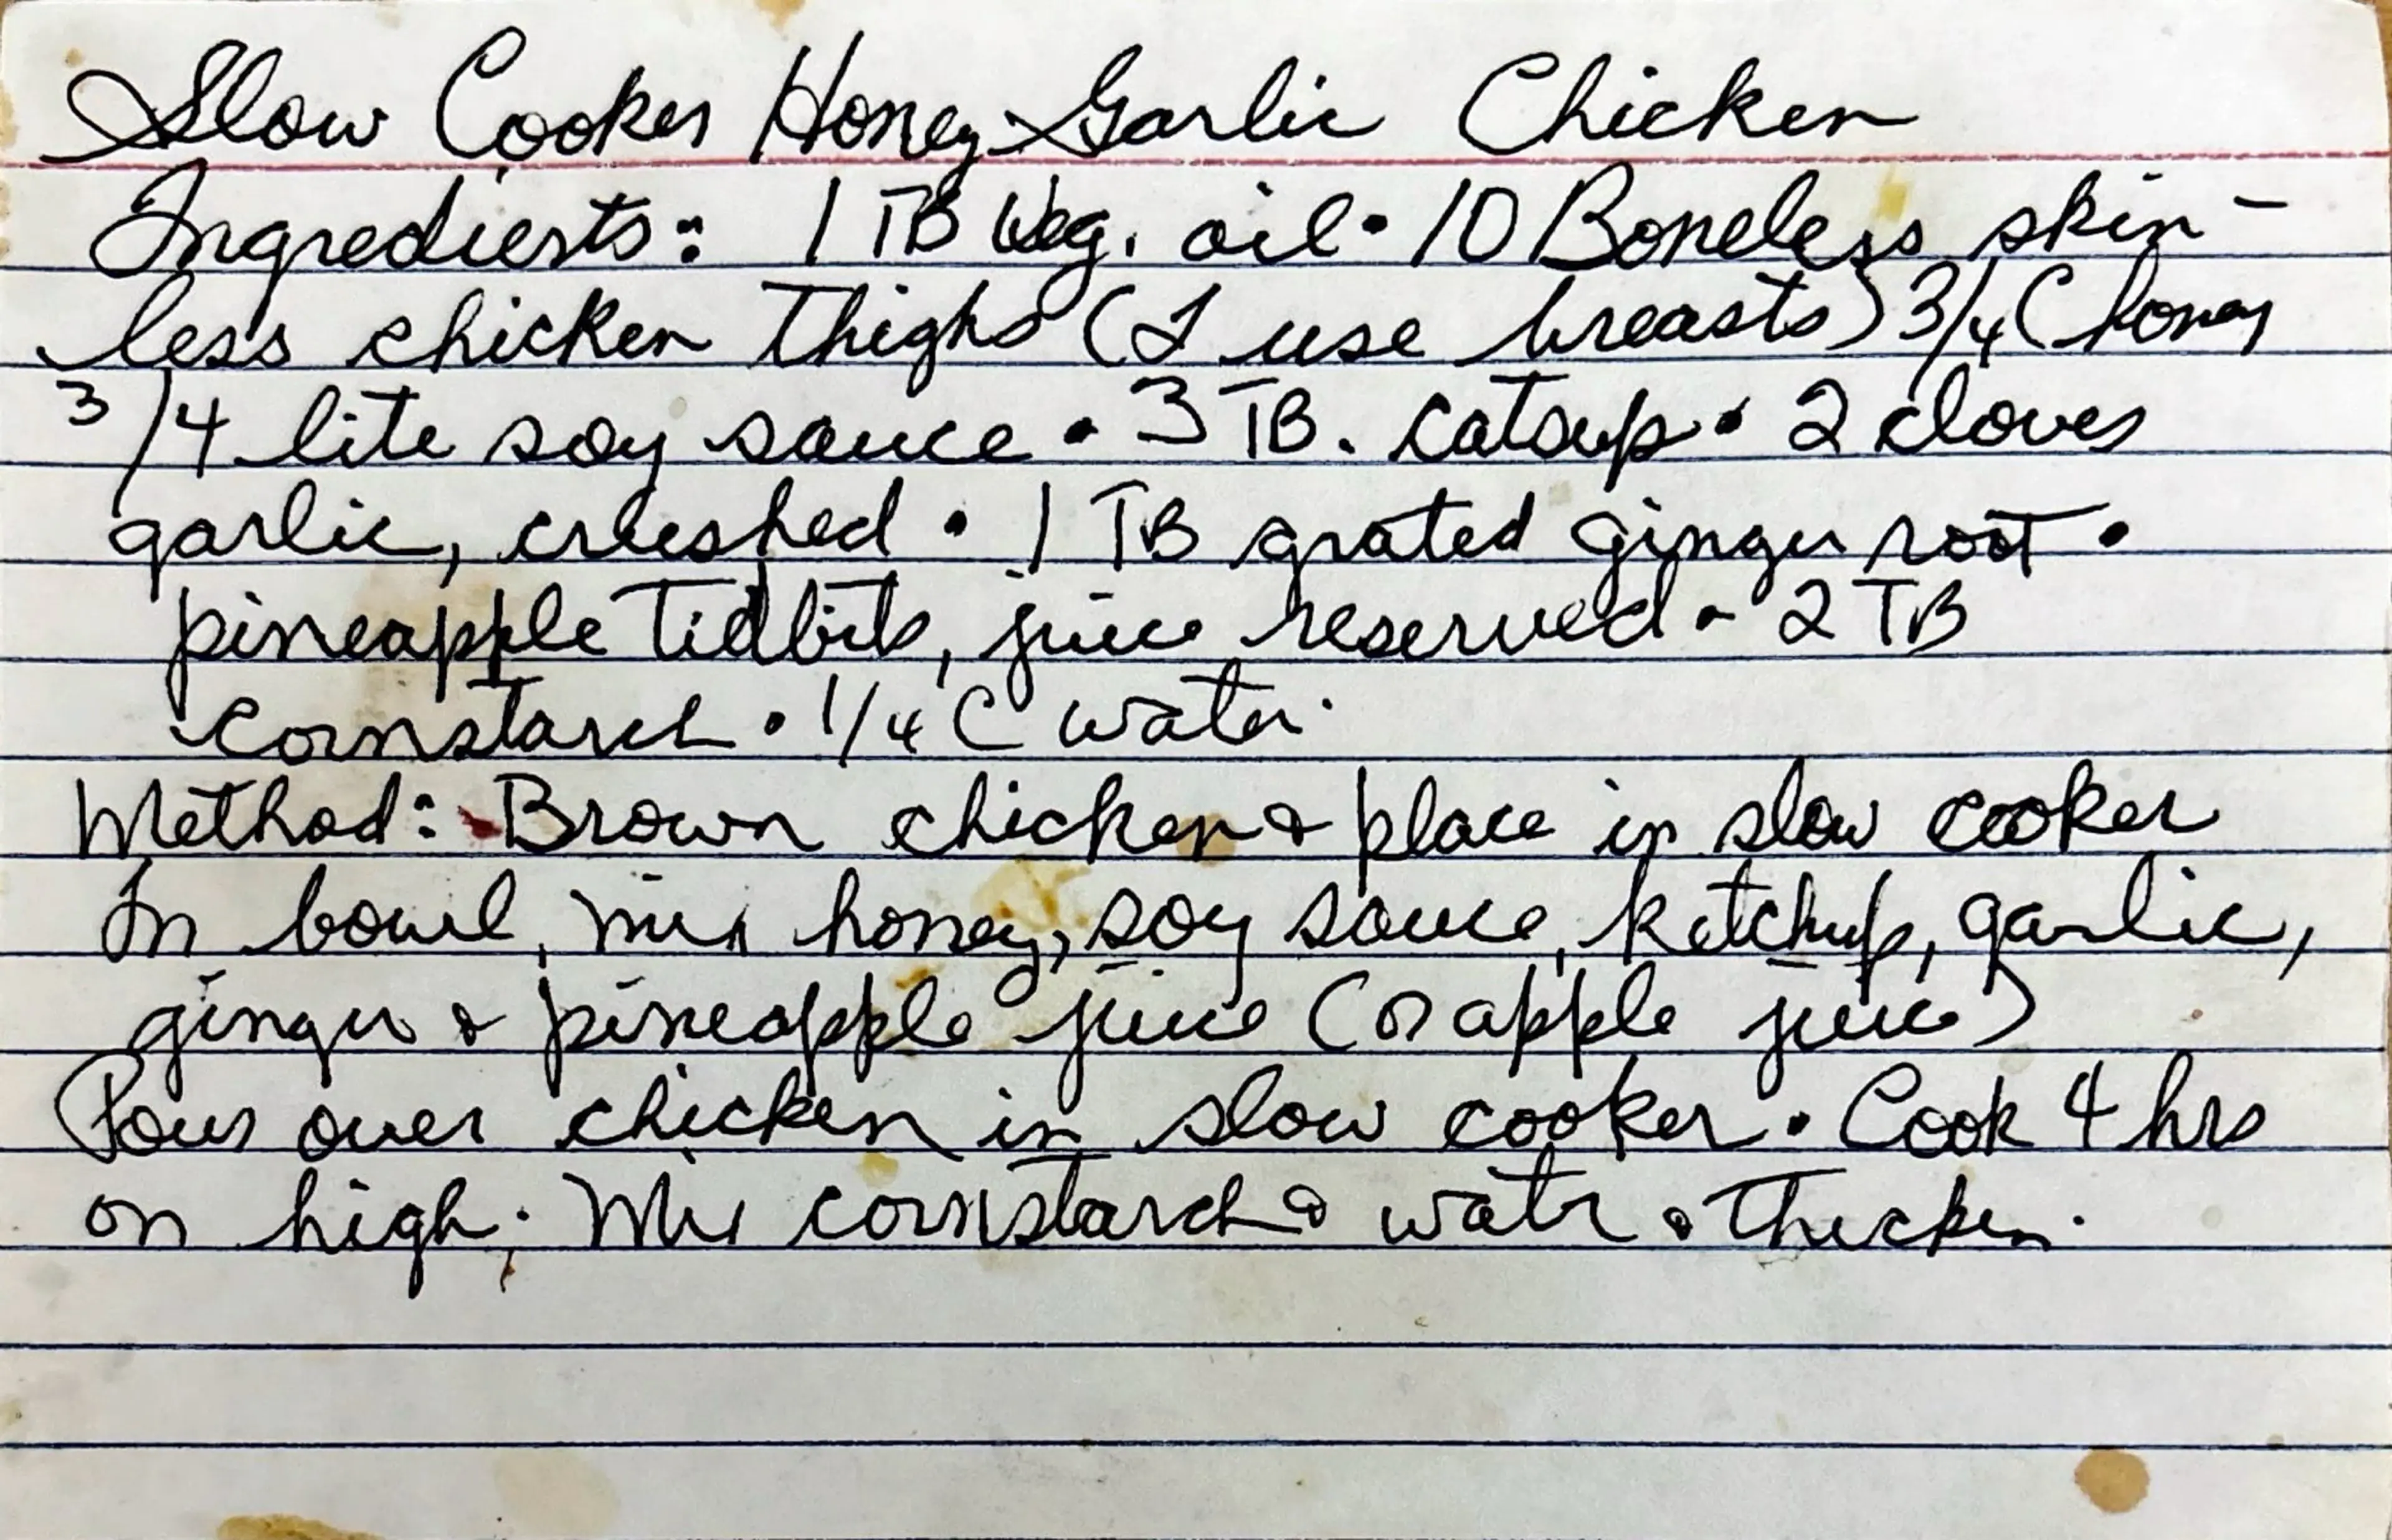 Slow Cooker Honey-Garlic Chicken
Ingredients: 1 TB Veg. oil • 10 Boneless skin-
less chicken thighs (I use breasts) 3/4 C honey
3/4 lite soy sauce • 3 TB. catsup • 2 cloves
garlic, crushed • 1 TB grated ginger root •
pineapple tidbits, juice reserved • 2 TB
cornstarch • 1/4 C water.
Method: Brown chicken & place in slow cooker
In bowl, mix honey, soy sauce, ketchup, garlic,
ginger & pineapple juice (or apple juice)
Pour over chicken in slow cooker. Cook 4 hrs
on high. Mix cornstarch & watr & thicken.